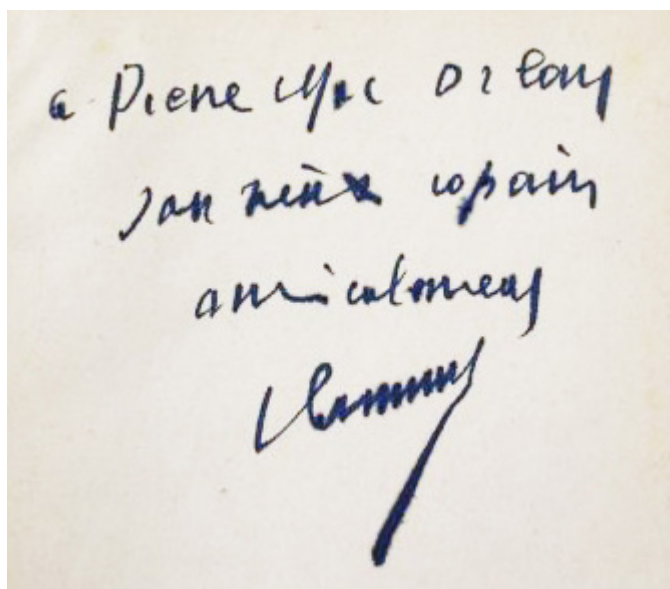 a Pierre Mac Orlan
son vieux copain
amicalement
Vlaminck